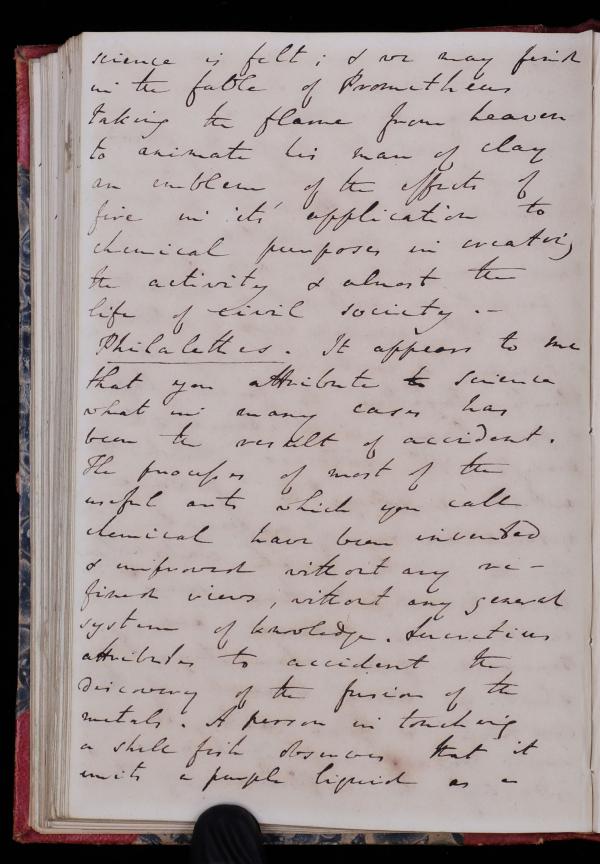 science is felt; & we may find
in the fable of Prometheus
taking the flame from heaven
to animate his man of clay
an emblem of the effects of
fire in its' application to
chemical purposes in creating
the activity & almost the
life of civil society. –
Philalethes. It appears to me
that you attribute to science
what in many cases has
been the result of accident.
The processes of most of the
useful arts which you call
chemical have been invented
& improved without any re-
fined views, without any general
system of knowledge. Lucretius
attributes to accident the
discovery of the fusion of the
metals. A person in touching
a shell fish observes that it
emits a purple liquid as a